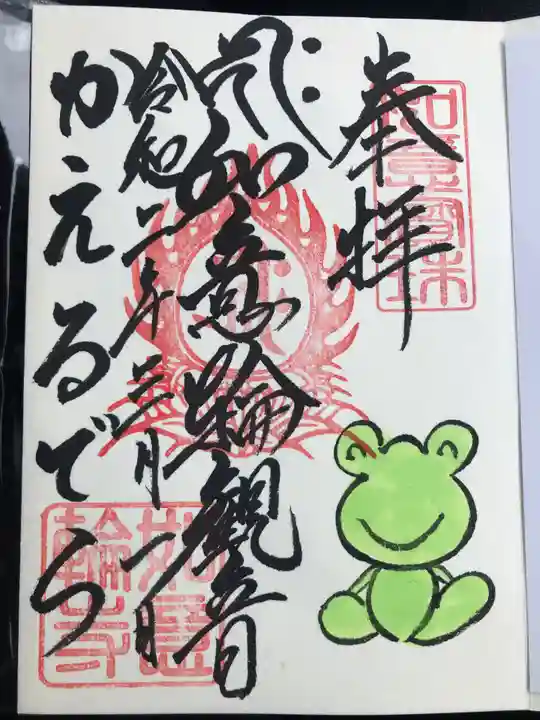 奉拝
如意宝珠
如意輪観音
令和二年三月一日
かえるでら
如意
輪寺